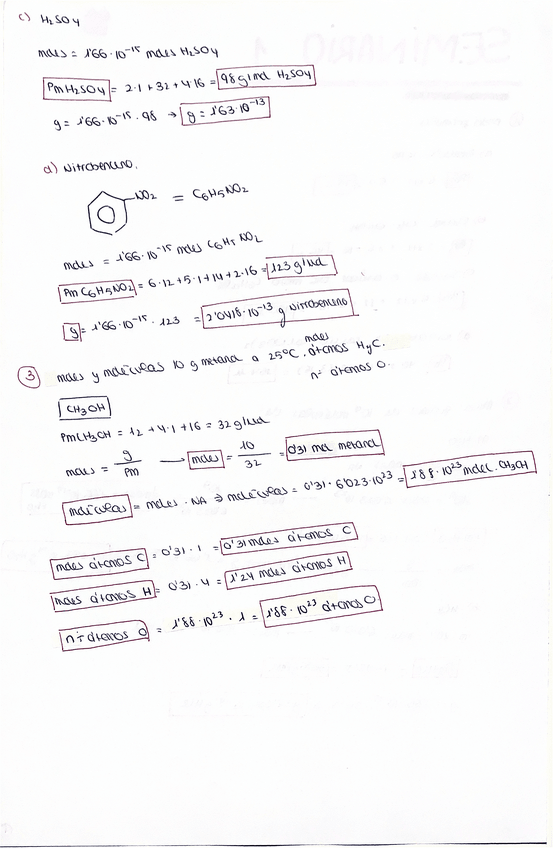 c) H₂SO₄
moles = 1'66·10⁻¹⁵ moles H₂SO₄
PmH₂SO₄ = 2·1+32+4·16 = 98 g/mol H₂SO₄
g = 1'66·10⁻¹⁵·98 → g = 1'63·10⁻¹³
d) Nitrobenceno.
NO₂ = C₆H₅NO₂
moles = 1'66·10⁻¹⁵ moles C₆H₅NO₂
PmC₆H₅NO₂ = 6·12+5·1+14+2·16 = 123 g/mol
g = 1'66·10⁻¹⁵·123 = 2'0418·10⁻¹³ g Nitrobenceno
3 moles y moléculas 10 g metanol a 25°C. moles átomos H y C.
nº átomos O.
CH₃OH
PmCH₃OH = 12+4·1+16 = 32 g/mol
moles = g/Pm → moles = 10/32 = 0'31 mol metanol
moléculas = moles·NA ⇒ moléculas = 0'31·6'023·10²³ = 1'88·10²³ moléc. CH₃OH
moles átomos C = 0'31·1 = 0'31 moles átomos C
moles átomos H = 0'31·4 = 1'24 moles átomos H
nº átomos O = 1'88·10²³·1 = 1'88·10²³ átomos O